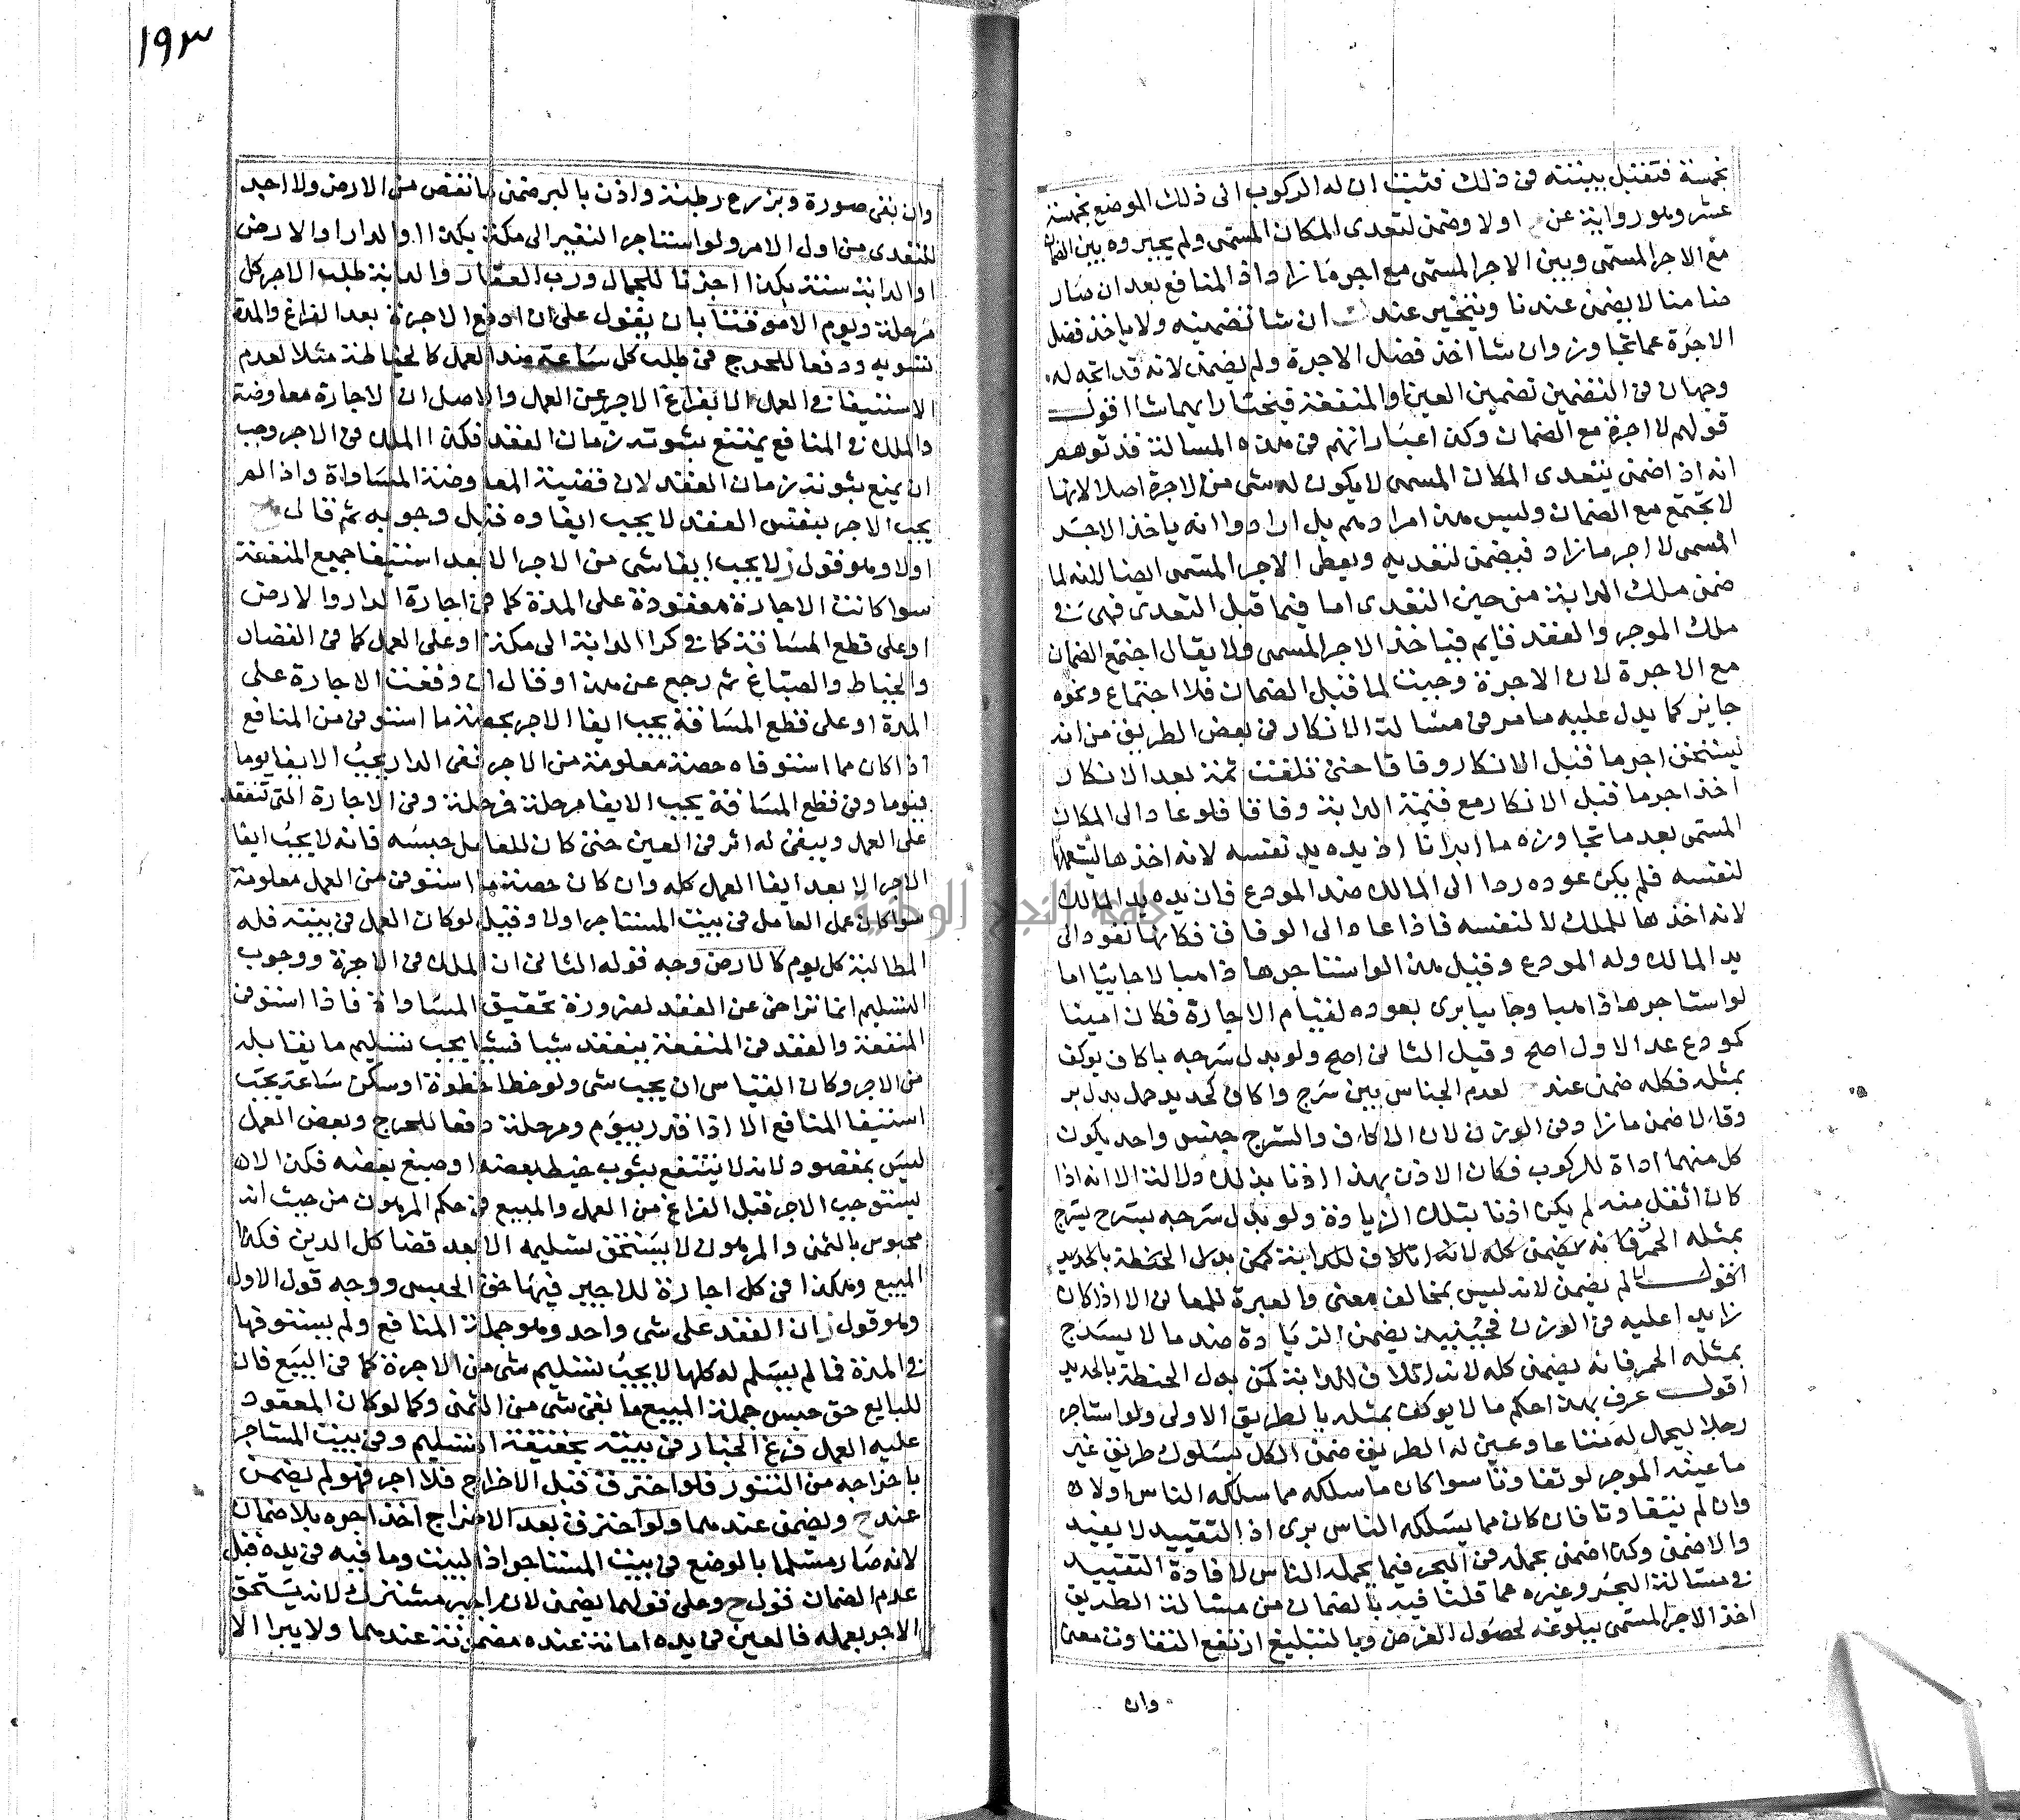 بخمسة فتقبل بينته في ذلك فثبت ان له الركوب الى ذلك الموضع بخمسة
عشر وهو رواية عن اولا وضمن لتعدى المكان المسمى ولم يخيروه بين الضمان
مع الاجر المسمى وبين الاجر المسمى مع اجر ما زاد اذ المنافع بعد ان صار
ضامنا لا يضمن عندنا ويتخير عند ان شا تضمينه ولا ياخذ فضل
الاجرة عما تجاوز وان شا اخذ فضل الاجرة ولم يضمن لانه قد اتجه له
وجهان في التضمين تضمين العين والمنفعة فيختار ايهما شا اقول
قولهم لا اجرة مع الضمان وكذا عباراتهم في هذه المسالة قد توهم
انه اذا ضمن بتعدى المكان المسمى لا يكون له شى من الاجرة اصلا لانها
لا تجتمع مع الضمان وليس هذا مرادهم بل ارادوا انه ياخذ الاجر
المسمى لا اجر ما زاد فيضمن لتعديه ويعطى الاجر المسمى ايضا لانه لما
ضمن ملك الدابة من حين التعدى اما فيما قبل التعدى فهى في
ملك الموجر والعقد قايم فياخذ الاجر المسمى ولا يقال اجتمع الضمان
مع الاجرة لان الاجرة وجبت لما قبل الضمان فلا اجتماع ونحوه
جايز كما يدل عليه ما مر في مسالة الانكار في بعض الطريق من انه
يستحق اجر ما قبل الانكار وفاقا حتى تلفت ثمة بعد الانكار
اخذ اجر ما قبل الانكار مع قيمة الدابة وفاقا فلو عاد الى المكان
المسمى بعد ما تجاوزه ما ابرانا اذ يده يد نفسه لانه اخذها ليستعملها
لنفسه فلم يكن عوده ردا الى المالك ضد المودع فان يده يد المالك
لانه اخذها للملك لا لنفسه فاذا عاد الى الوفاق فكانها تعود الى
يد المالك وله المودع وقيل هذا لو استاجرها ذاهبا لا جاييا اما
لو استاجرها ذاهبا وجاييا يبرى بعوده لقيام الاجارة فكان امينا
كمودع عد الاول اصح وقيل الثانى اصح ولو بدل سرجه باكاف يوكف
بمثله فكله ضمن عند لعدم الجناس بين سرج واكاف كحديد حمل بدل بر
وقالا ضمن ما زاد في الوزن لان الاكاف والسرج جنس واحد يكون
كل منهما اداة للركوب فكان الاذن بهذا اذنا بذلك دلالة الا انه اذا
كان اثقل منه لم يكن اذنا بتلك الزيادة ولو بدل سرجه بسرج يسرج
بمثله الحمر فانه لا يضمن كله لانه اتلاف للدابة كمن بدل الحنطة بالحديد
اقول لم يضمن لانه ليس بمخالف معنى والعبرة للمعانى الا اذا كان
زايدا عليه في الوزن فحينئذ يضمن الزيادة ضد ما لا يسرج
بمثله الحمر فانه يضمن كله لانه اتلاف للدابة كمن بدل الحنطة بالحديد
اقول عرف بهذا حكم ما لا يوكف بمثله بالطريق الاولى ولو استاجر
رجلا ليحمل له متاعا وعين له الطريق ضمن الكل بسلوك طريق غير
ما عينه الموجر لو تفاوتا سوا كان ما سلكه مما سلكه الناس اولا
وان لم يتفاوتا فان كان مما يسلكه الناس برى اذ التقييد لا يفيد
والا ضمن وكذا ضمن بحمله في البحر فيما يحمله الناس لافادة التقييد
في مسالة البحر وغيره مما قلنا فيه بالضمان من مسالة الطريق
اخذ الاجر المسمى ببلوغه لحصول الغرض وبالتبليغ ارتفع التفاوت معنى
وان
١٩٣
وان بقى صورة وبزرع رطبة واذن بالبر ضمن ما نقص من الارض ولا اجر
للتعدى من اول الامر ولو استاجر البقير الى مكة بكذا او الدار او الارض
او الدابة سنة بكذا اجزنا للجمال ورب العقار والدابة طلب الاجر كل
مرحلة ويوم الا موقتا بان يقول على ان ادفع الاجرة بعد الفراغ والمدة
تسوية ودفعا للحرج في طلب كل ساعة ضد العمل كالخياطة مثلا لعدم
الاستيفا في العمل الا بفراغ الاجير عن العمل والاصل ان الاجارة معاوضة
والملك في المنافع يمتنع ثبوته زمان العقد فكذا الملك في الاجر وجب
ان يمنع ثبوته زمان العقد لان قضية المعاوضة المساواة واذا لم
يجب الاجر بنفس العقد لا يجب ايفاوه قبل وجوبه ثم قال
اولا وهو قول ز لا يجب ايفا شى من الاجر الا بعد استيفا جميع المنفعة
سوا كانت الاجارة معقودة على المدة كما في اجارة الدار والارض
او على قطع المسافة كما في كرا الدابة الى مكة او على العمل كما في القصار
والخياط والصباغ ثم رجع عن هذا وقال ان وقعت الاجارة على
المدة او على قطع المسافة يجب ايفا الاجر بحصة ما استوفى من المنافع
اذا كان مما استوفاه حصة معلومة من الاجر ففى الدار يجب الايفا يوما
فيوما وفي قطع المسافة يجب الايفا مرحلة فمرحلة وفي الاجارة التى تنعقد
على العمل ويبقى له اثر في العين حتى كان للعامل حبسه فانه لا يجب ايفا
الاجر الا بعد ايفا العمل كله وان كان حصة ما استوفى من العمل معلومة
سوا كان عمل العامل في بيت المستاجر اولا وقيل لو كان العمل في بيته فله
المطالبة كل يوم كالارض وجه قوله الثانى ان الملك في الاجرة ووجوب
التسليم انما تراخى عن العقد لضرورة تحقيق المساواة فاذا استوفى
المنفعة والعقد في المنفعة ينعقد شيا فشيا يجب تسليم ما يقابله
من الاجر وكان القياس ان يجب شى ولو خطا خطوة او سكن ساعة يجب
استيفا المنافع الا اذا قدر بيوم ومرحلة دفعا للحرج وبعض العمل
ليس بمقصود لانه لا ينتفع بثوب خيط بعضه او صبغ بعضه فكذا لا
يستوجب الاجر قبل الفراغ من العمل والمبيع في حكم المرهون من حيث انه
محبوس بالثمن والمرهون لا يستحق تسليمه الا بعد قضا كل الدين فكذا
المبيع وهكذا في كل اجارة للاجير فيها حق الحبس ووجه قول الاول
وهو قول ز ان العقد على شى واحد وهو جملة المنافع ولم يستوفها
في المدة فما لم يسلم له كلها لا يجب تسليم شى من الاجرة كما في البيع فان
للبايع حق حبس جملة المبيع ما بقى شى من الثمن وكما لو كان المعقود
عليه العمل فرغ الخباز في بيته بحقيقة التسليم وفي بيت المستاجر
باخراجه من التنور فلو احترق قبل الاخراج فلا اجر فهو لم يضمن
عند ح ويضمن عندهما ولو احترق بعد الاخراج اخذ اجره بلا ضمان
لانه صار مسلما بالوضع في بيت المستاجر اذ البيت وما فيه في يده قبل
عدم الضمان قول ح وعلى قولهما يضمن لانه اجير مشترك لانه يستحق
الاجر بعمله فالعين في يده امانة عنده مضمونة عندهما ولا يبرا الا
جامعة النجاح الوطنية